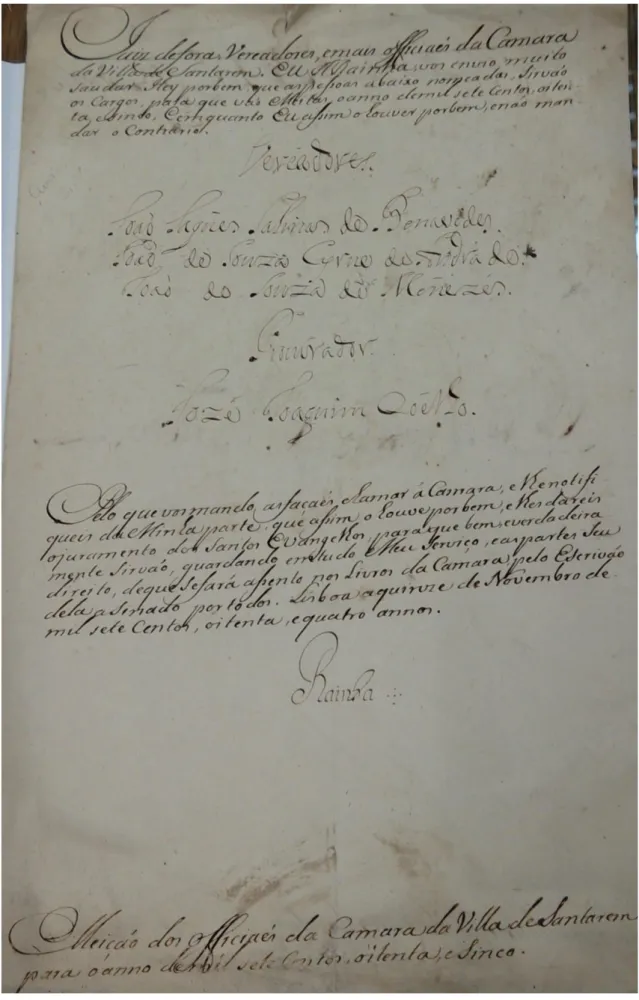 Juiz de fora, Vereadores, e mais officiaés da Camara
da Villa de Santarem. EU A Rainha vos envio muito
saudar. Hey porbem que as pessoas abaixo nomeadas, sirvaó
os Cargos, para que vaó eleitos o anno de mil sete Centos, oiten-
ta, e sinco. Cemquanto Eu assim o houver porbem, enaó man-
dar o Contrario.
Vereadores.
Joaó de
Joaó de Souza de Andrade.
Joaó de Souza de Menezes.
Procurador.
Jozé Joaquim Coêlho.
Pelo que vos mando, os façaés chamar á Camara, e lhe notifi
queis da Minha parte, que assim o houve porbem, e lhes dareis
o juramento dos Santos Evangelhos, para que bem, e verdadeira
mente sirvaó, guardando em tudo o Meu Serviço, e as partes seu
direito, de que se fará assento nos Livros da Camara, pelo Escrivaó
dela asinado por todos. Lisboa a quinze de Novembro de
mil sete Centos, oitenta, e quatro annos.
Rainha
Eleiçaó dos officiaés da Camara da Villa de Santarem
para o anno de mil sete Centos, oitenta, e Sinco.